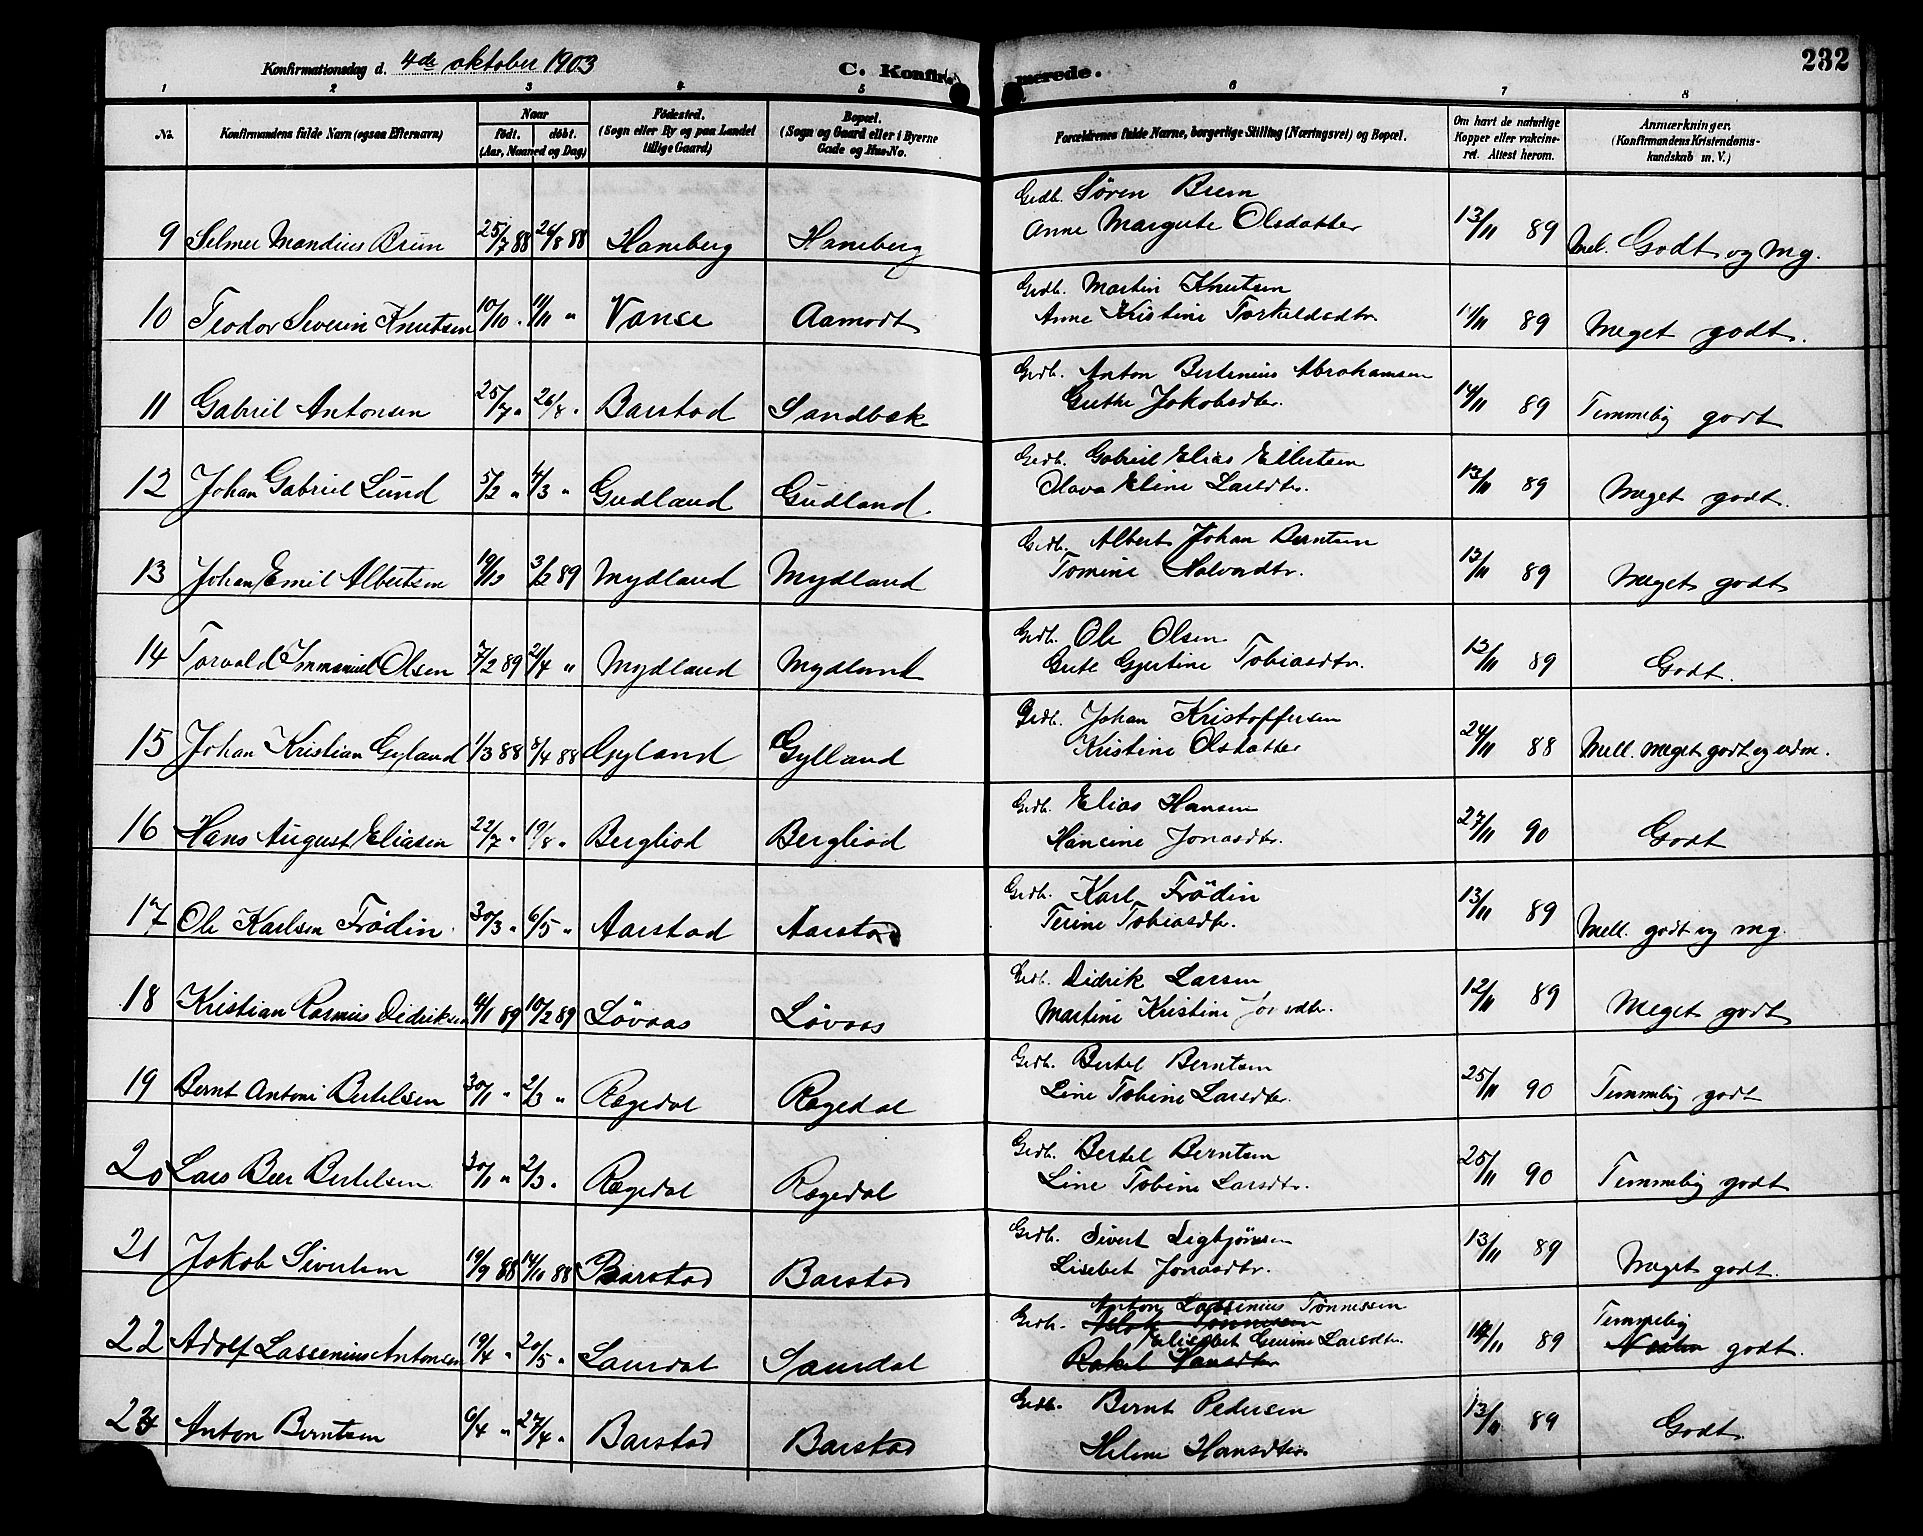 Konfirmationsdag d. 4de oktober 1903 C. Konfirmerede. 232
1 2 3 4 5 6 7 8
No. Konfirmandens fulde Navn (ogsaa Efternavn) Naar født. døbt. (Aar, Maaned og Dag) Fødested. (Sogn eller By og paa Landet tillige Gaard) Bopæl. (Sogn og Gaard eller i Byerne Gade og Hus-No. Forældrenes fulde Navne, borgerlige Stilling (Næringsvei) og Bopæl. Om havt de naturlige Kopper eller vakcineret. Attest herom. Anmærkninger. (Konfirmandens Kristendomskundskab m. V.)
Grdb. Søren Brun
9 Selmer Mandius Brun 25/7 88 26/8 88 Haneberg Haneberg Anne Margrete Olsdatter 13/11 89 Mel. Godt og mg.
Grdb. Martin Knutsen
10 Teodor Severin Knutsen 10/10 " 11/11 " Vanse Aamodt Anne Kristine Torkeldsdtr. 11/11 89 Meget godt.
Grdb. Anton Bertinius Abrahamsen
11 Gabriel Antonsen 25/7 " 26/8 " Barstad Sandbæk Grethe Jakobsdtr. 14/11 89 Temmelig godt
Grdb. Gabriel Elias Ellertsen
12 Johan Gabriel Lund 5/2 " 4/3 " Gudland Gudland. Olava Eline Larsdtr. 13/11 89 Meget godt.
Grdb. Albert Johan Berntsen
13 Johan Emil Albertsen 19/12 3/2 89 Mydland Mydland Tomine Halvordtr. 13/11 89 Meget godt
Grdb. Ole Olsen
14 Torvald Immanuel Olsen 7/2 89 21/4 " Mydland Mydland Grete Gjertine Tobiasdtr. 13/11 89 Godt.
Grdb. Johan Kristoffersen
15 Johan Kristian Gyland 1/3 88 8/4 88 Gyland Gylland Kristine Olsdatter 24/11 88 Mell. meget godt og udm.
Grdb. Elias Hansen
16 Hans August Eliasen 22/7 " 19/8 " Bergliod Bergliod Hancine Jonasdtr. 27/11 90 Godt
Grdb. Karl Frödin
17 Ole Karlsen Frödin 30/3 " 6/5 " Aarstad Aarstad Terine Tobiasdtr. 13/11 89 Mell. godt og mg.
Grdb. Didrik Larsen
18 Kristian Rasmus Didriksen 4/1 89 10/2 89 Løvaas Løvaas Martine Kristine 12/11 89 Meget godt
Grdb. Bertel Berntsen
19 Bernt Antoni Bertelsen 30/1 " 2/3 " Rægedal Rægedal Line Tobine Larsdtr. 25/11 90 Temmelig godt
Grdb. Bertel Berntsen
20 Lars Beer Bertelsen 30/1 " 2/3 " Rægedal Rægedal Line Tobine Larsdtr. 25/11 90 Temmelig godt
Grdb. Sivert Sigbjørnsen
21 Jakob Sivertsen 19/9 88 14/10 88 Barstad Barstad Lisebet Jonasdtr. 13/11 89 Meget godt.
Anton Lassenius Tønnessen
Grdb. Aslak Tønnesen Temmelig
Elisebet Gurine Larsdtr.
22 Adolf Lassenius Antonsen 19/4 " 20/5 " Saurdal Saurdal Rakel Larsdtr 14/11 89 Næsten godt.
Grdb. Bernt Pedersen
23 Anton Berntsen 6/4 " 27/4 " Barstad Barstad Helene Hansdtr. 13/11 89 Godt.